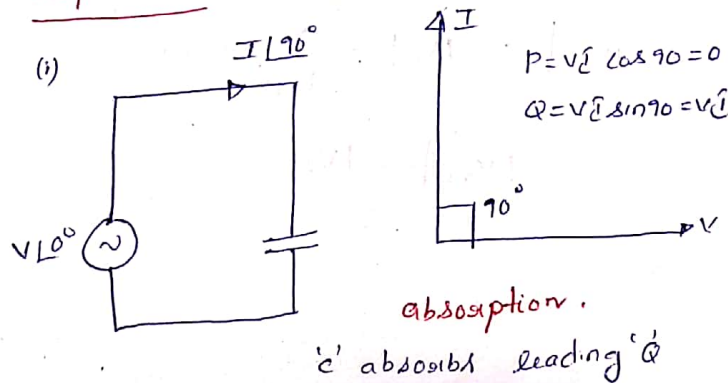 (i)
I∠90°
V∠0°
I
P = VI cos 90 = 0
Q = VI sin 90 = VI
90°
V
absorption.
'c' absorbs leading 'Q'